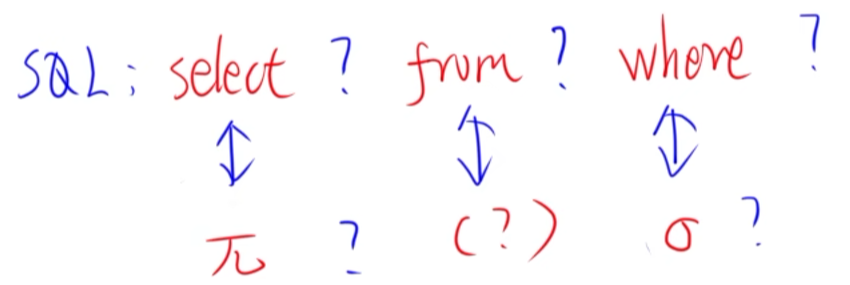 SQL: select ? from ? where ?
π ? (?) σ ?